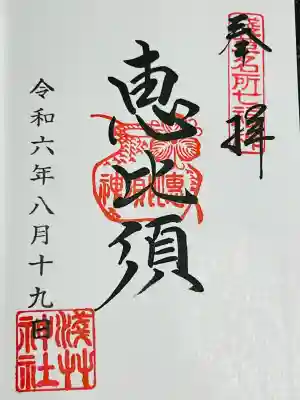 奉拝
浅草名所七福神
恵比須
恵比須神
令和六年八月十九日
浅草神社